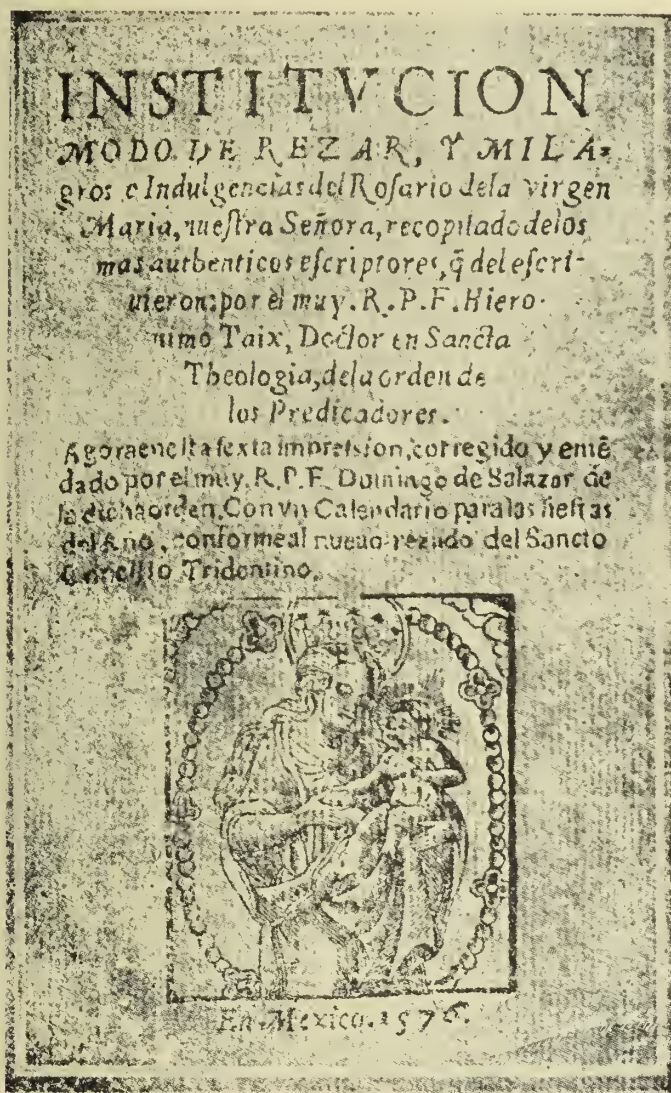 INSTITVCION
MODO DE REZAR, Y MILA-
gros e Indulgencias del Rosario dela virgen
Maria, nuestra Señora, recopilado delos
mas authenticos escriptores, q̃ del escri-
uieron: por el muy. R. P. F. Hiero-
nimo Taix, Doctor en Sancta
Theologia, dela orden de
los Predicadores.
Agora en esta sexta impression, corregido y emẽ
dado por el muy. R. P. F. Domingo de Salazar de
la dicha orden. Con vn Calendario para las fiestas
del Año, conforme al nueuo rezado del Sancto
Concilio Tridentino.
En Mexico. 1576.